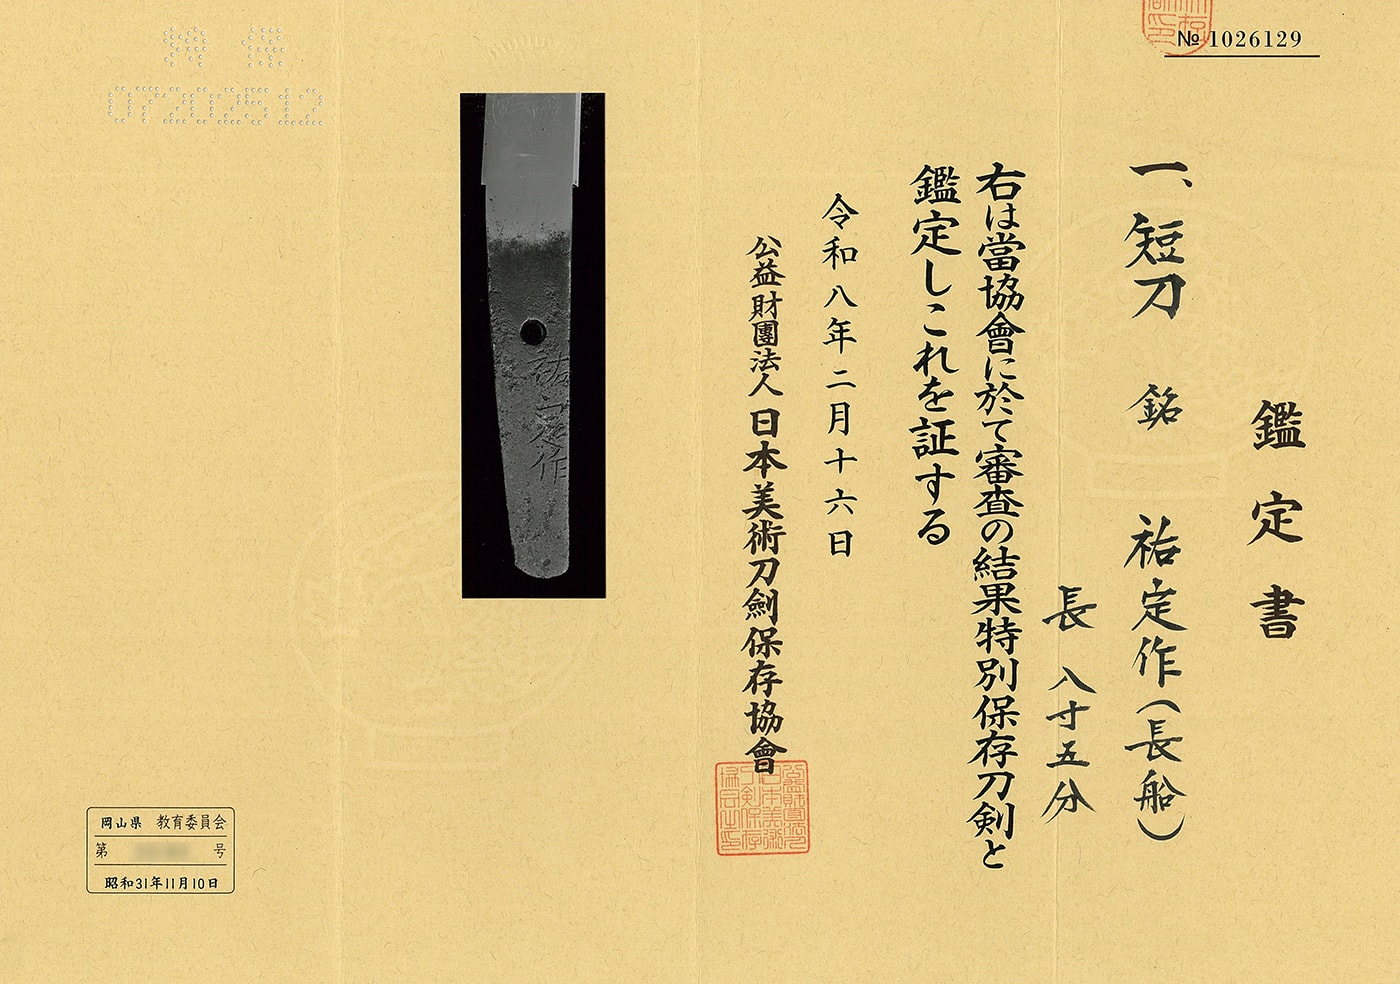 № 1026129
鑑定書
一、短刀 銘 祐定作(長船)
長八寸五分
右は當協會に於て審査の結果特別保存刀剣と
鑑定しこれを証する
令和八年二月十六日
公益財團法人日本美術刀劍保存協會
祐定作
07202512
岡山県 教育委員会
第 号
昭和31年11月10日